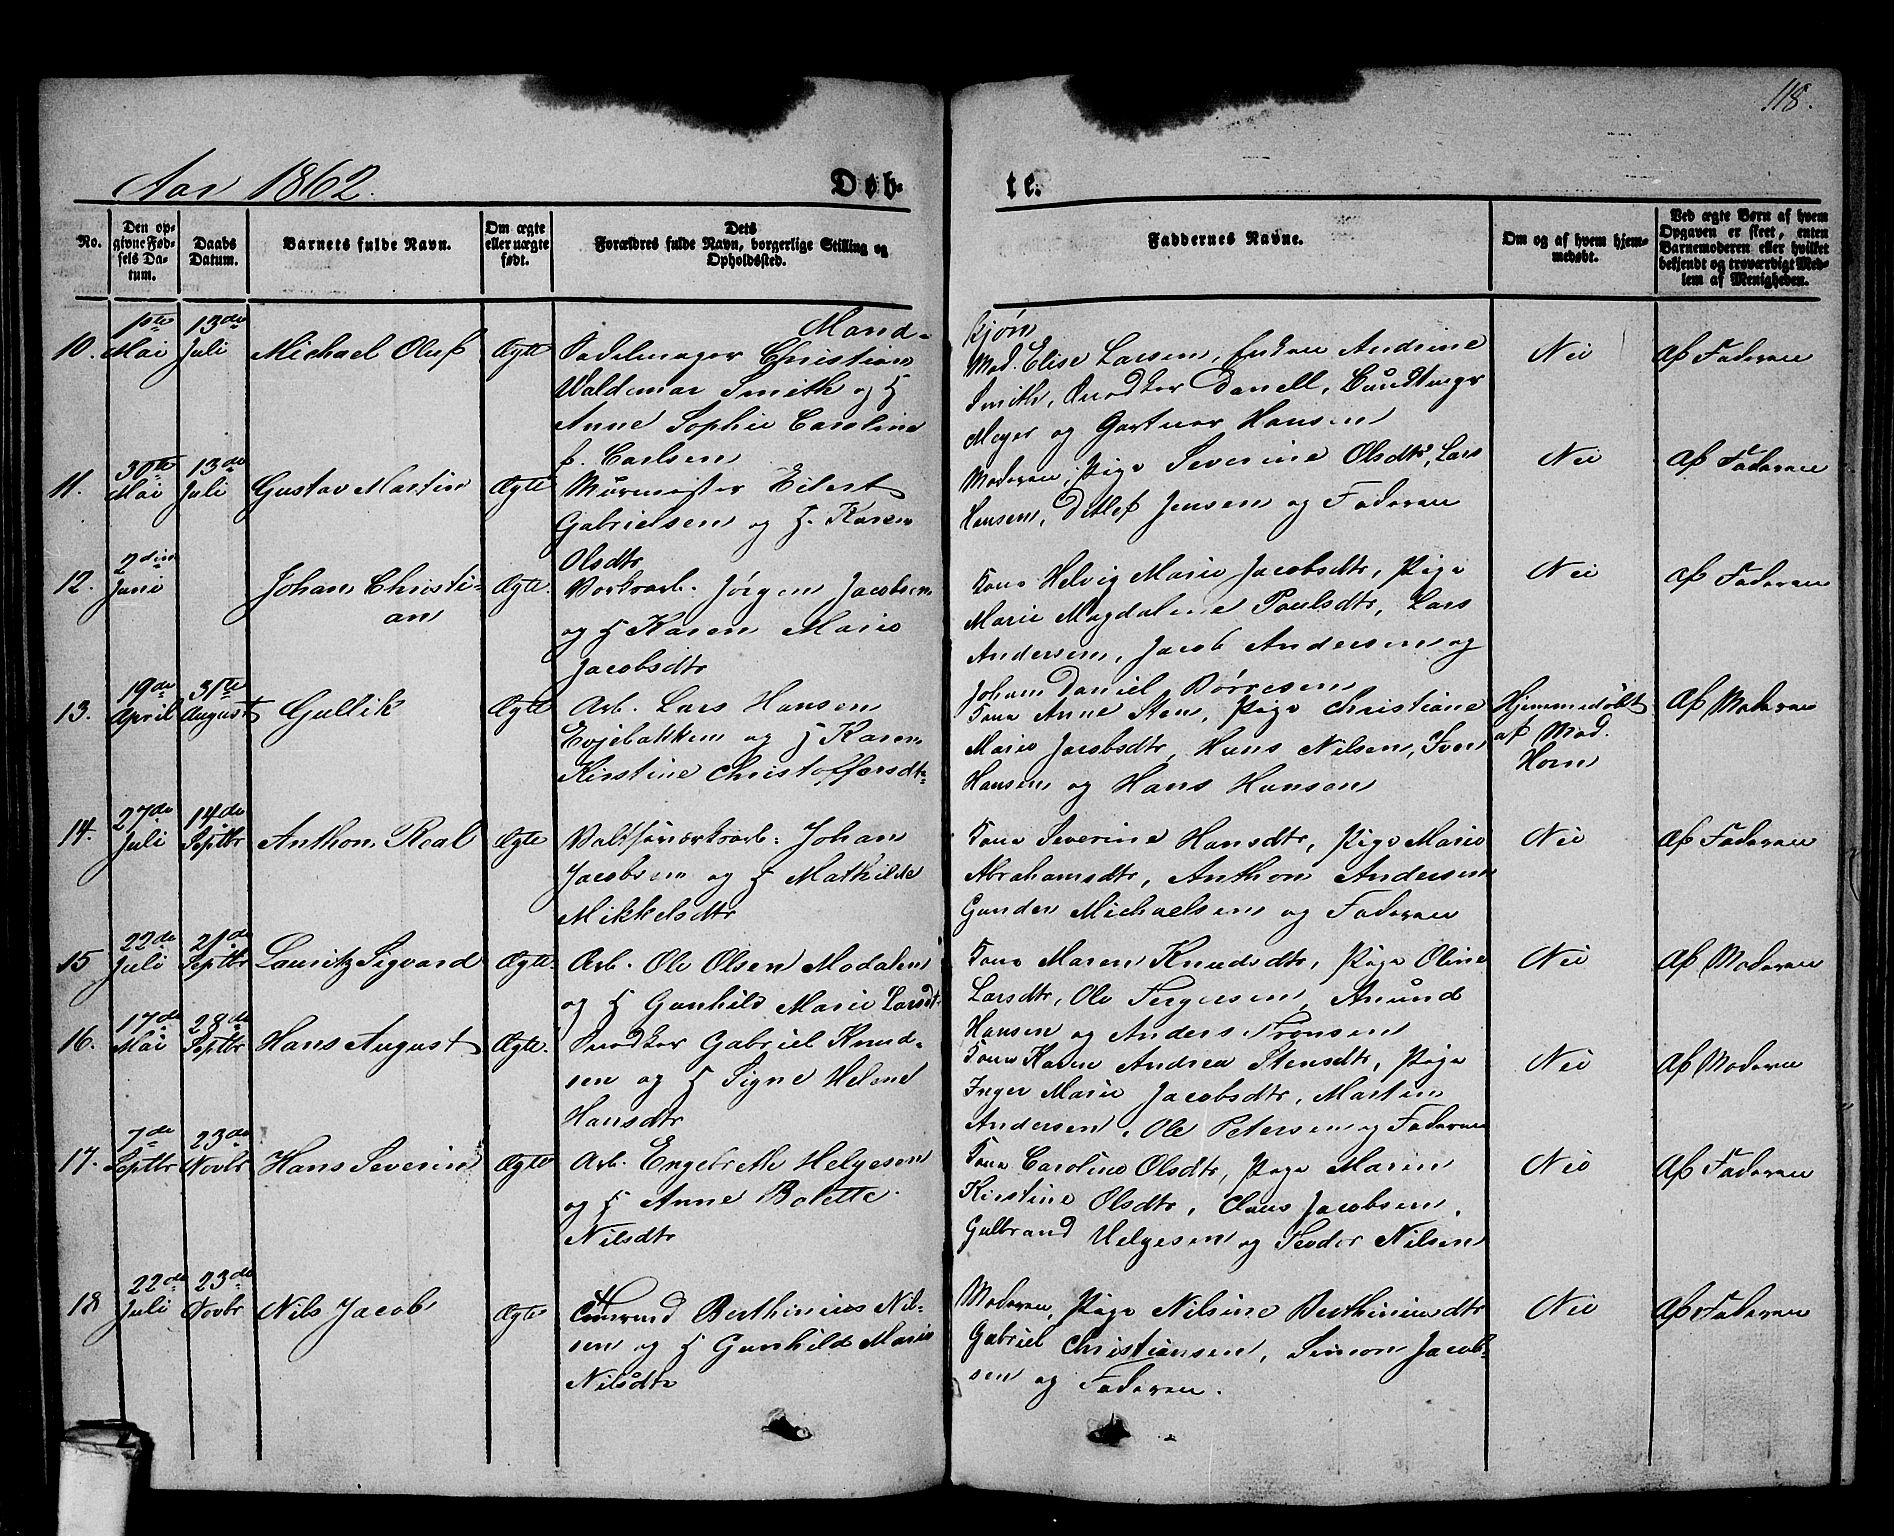 118.
Aar 1862.
Døb-
te.
No.
Den op-
givne Fød-
sels Da-
tum.
Daabs
Datum.
Barnets fulde Navn.
Om ægte
eller uægte
født.
Dets
Forældres fulde Navn, borgerlige Stilling og
Opholdssted.
Faddernes Navne.
Om og af hvem hjem-
medøbt.
Ved ægte Børn af hvem
Opgaven er skeet, enten
Barnemoderen eller hvilket
bekjendt og troværdigt Med-
lem af Menigheden.
Mand-
kjøn
10.
1ste
Mai
13de
Juli
Michael Oluf
Ægte
Sadelmager Christian
Waldemar Smith og H
Anne Sophie Caroline
f. Carlsen
Mad. Elise Larsen, Enken Andrine
Smith, Snedker Danell, Buudtmager
Meyer og Gartner Hansen
Nei
Af Faderen
11.
30te
Mai
13de
Juli
Gustav Martin
Ægte
Murmester Eilert
Gabrielsen og H. Karen
Olsdtr
Moderen, Pige Severine Olsdtr, Lars
Hansen, Detlef Jensen og Faderen
Nei
Af Faderen
12.
2den
Juni
Johan Christi-
an
Ægte.
Værksarb. Jørgen Jacobsen
og H Karen Marie
Jacobsdtr
Kone Helvig Marie Jacobsdtr, Pige
Marie Magdalene Paulsdtr, Lars
Andersen, Jacob Andersen og
Johan Daniel Børresen
Nei
Af Faderen
13.
19de
April
31te
August
Gullik
Ægte
Arb. Lars Hansen
Evjebakken og H Karen
Kirstine Christoffersdtr
Kone Anne Sten, Pige Christiane
Marie Jacobsdtr, Hans Nilsen, Iver
Hansen og Hans Hansen
Hjemmedøbt
af Mad.
Horn
Af Moderen
14.
27de
Juli
14de
Septbr
Anthon Real
Ægte
Johan
Jacobsen og H Mathilde
Mikkelsdtr
Kone Severine Hansdtr, Pige Marie
Abrahamsdtr, Anthon Andersen
Gunder Michaelsen og Faderen
Nei
Af Faderen
15
22de
Juli
21de
Septbr
Lauritz Sigvard
Ægte.
Arb. Ole Olsen Modalen
og H Gunhild Marie Larsdtr
Kone Maren Knudsdtr, Pige Oline
Larsdtr, Ole Tergersen, Anund
Hansen og Anders Trønsen
Nei
Af Moderen
16.
17de
Mai
28de
Septbr
Hans August
Ægte.
Snedker Gabriel Knud-
sen og H Signe Helene
Hansdtr
Kone Karen Andrea Stensdtr, Pige
Inger Marie Jacobsdtr, Martin
Andersen, Ole Petersen og Faderen
Nei
Af Moderen
17.
7de
Septbr
23de
Novbr
Hans Severin
Ægte
Arb. Engebreth Helgesen
og H Anne Bolette
Nilsdtr
Kone Caroline Olsdtr, Pige Maren
Kirstine Olsdtr, Claus Jacobsen,
Gulbrand Helgesen og Teodor Nilsen
Nei
Af Faderen
18
22de
Juli
23de
Novbr
Nils Jacob
Ægte
Berthinius Nil-
sen og H Gunhild Marie
Nilsdtr
Moderen, Pige Nilsine Berthiniusdtr
Gabriel Christiansen, Simon Jacob-
sen og Faderen.
Nei
Af Faderen